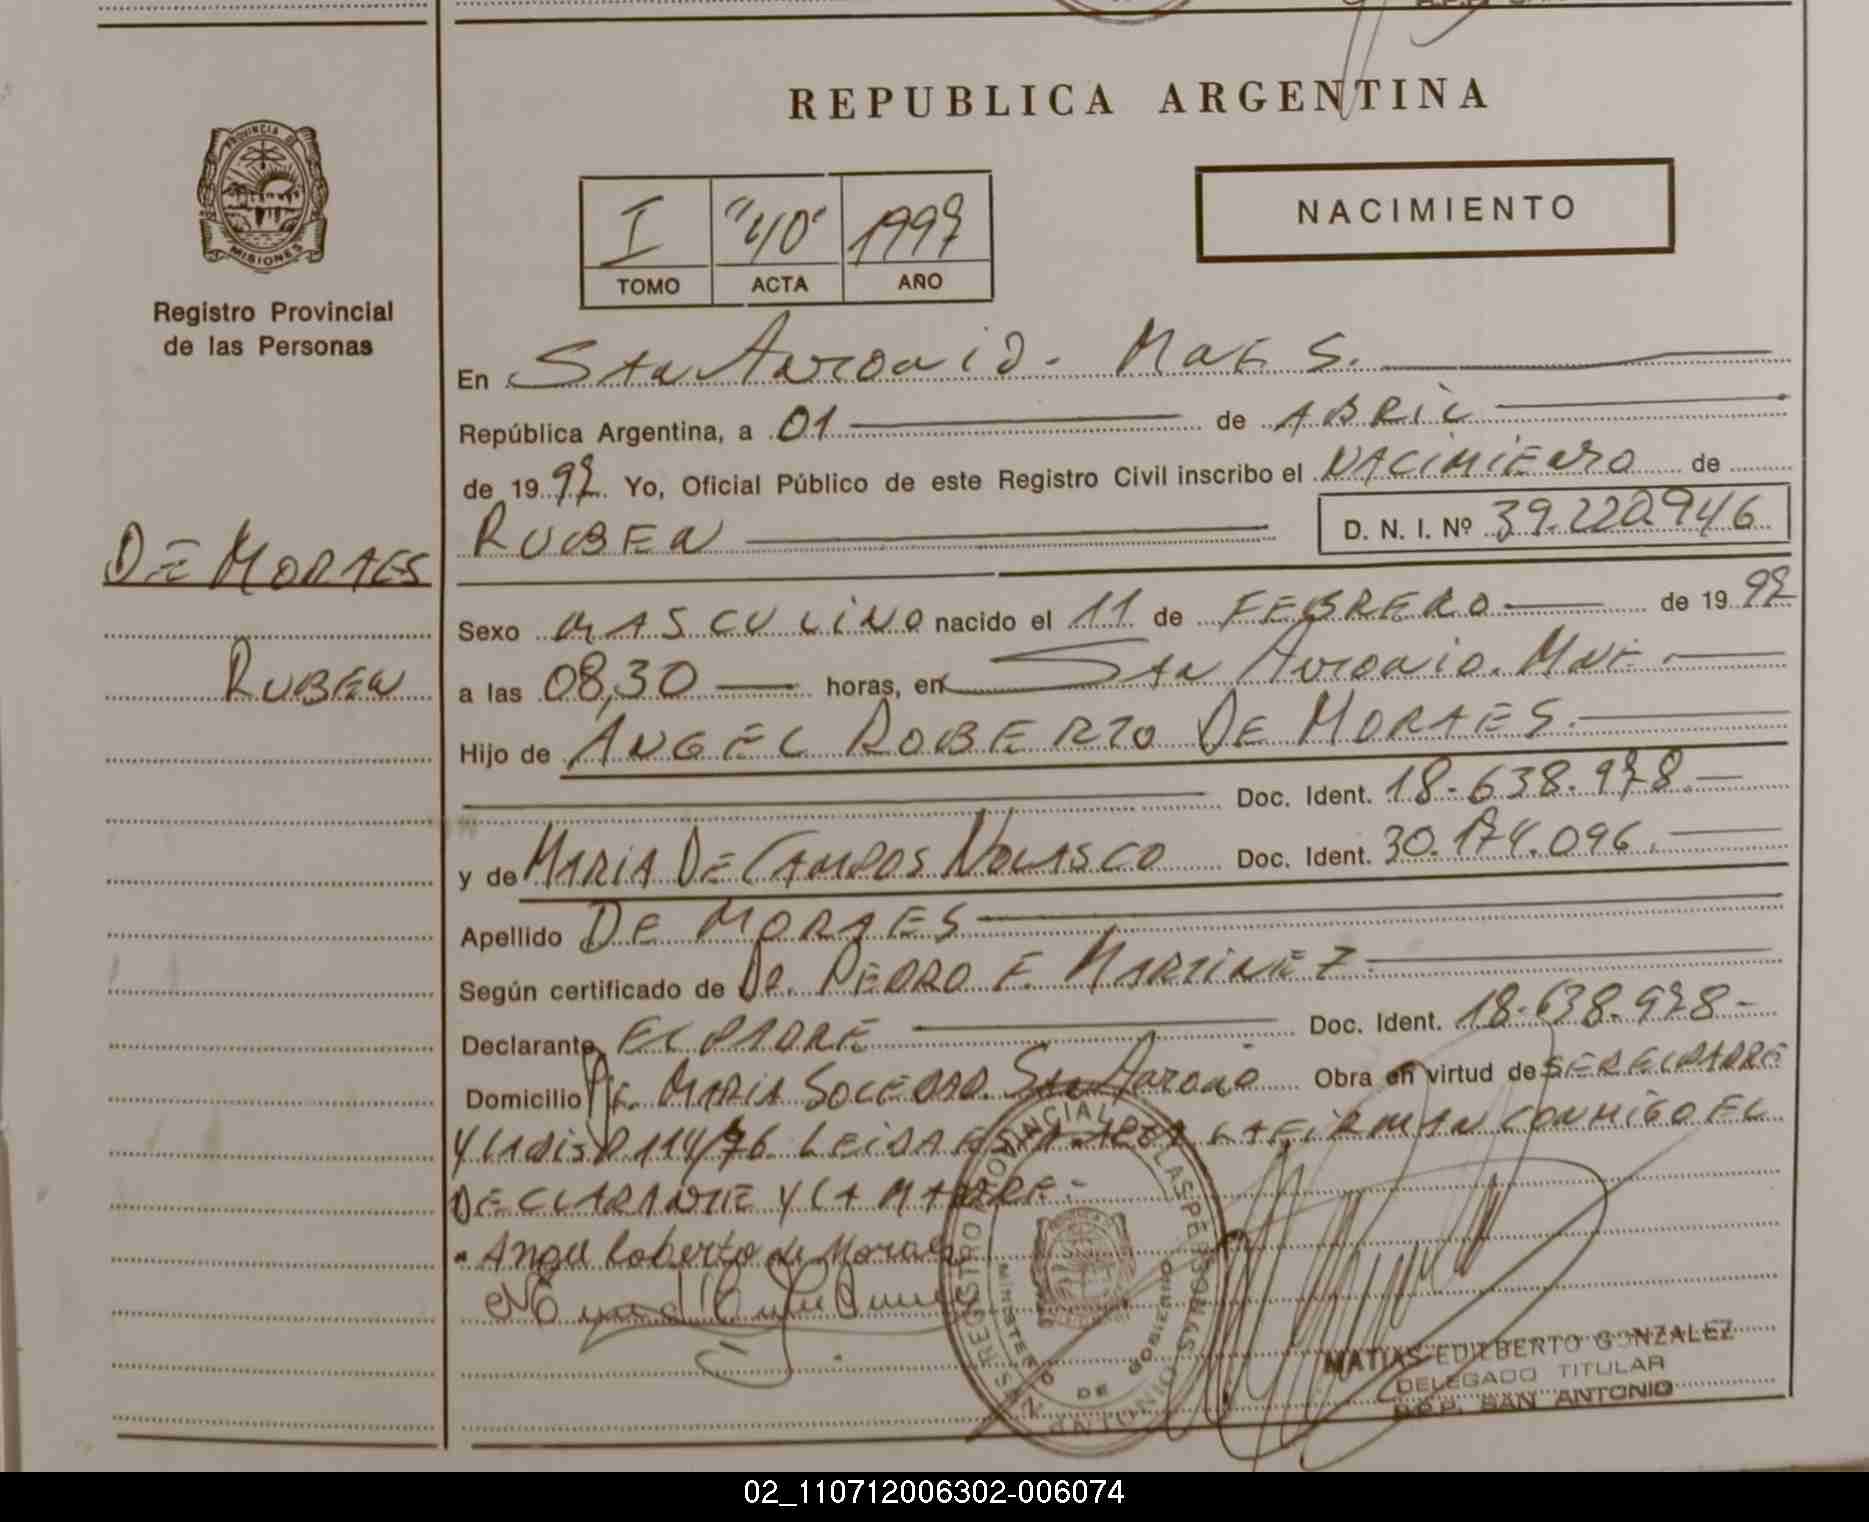 REPUBLICA ARGENTINA
PROVINCIA DE
MISIONES
Registro Provincial
de las Personas
I "40" 1997
TOMO ACTA AÑO
NACIMIENTO
En San Antonio - Mnes.
República Argentina, a 01 de ABRIL
de 1997 Yo, Oficial Público de este Registro Civil inscribo el NACIMIENTO de
RUBEN D. N. I. Nº 39.220.946
DE MORAES
RUBEN
Sexo MASCULINO nacido el 11 de FEBRERO de 1997
a las 08,30 horas, en San Antonio. Mne
Hijo de ANGEL ROBERTO DE MORAES.
Doc. Ident. 18.638.978.
y de MARIA DE CAMPOS NOLASCO Doc. Ident. 30.174.096.
Apellido DE MORAES
Según certificado de DR. PEDRO E. MARTINEZ
Declarante EL PADRE Doc. Ident. 18.638.978-
Domicilio MARIA SOLEDAD. San Antonio Obra en virtud de SER EL PADRE
Y LA DISP 114/76. LEIDA ESTA ACTA LA FIRMAN CONMIGO EL
DECLARANTE Y LA MADRE.-
Angel Roberto de Moraes
REGISTRO PROVINCIAL DE LAS PERSONAS
MINISTERIO DE GOBIERNO
SAN ANTONIO MNES
MATIAS EDILBERTO GONZALEZ
DELEGADO TITULAR
R.P.P. SAN ANTONIO
02_110712006302-006074